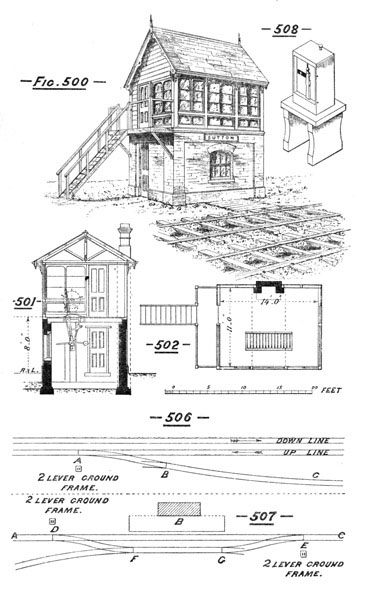 508
FIG. 500
SUTTON
501
14.0"
11.0"
8.0"
502
RAIL
0 5 10 15 20 FEET
506
DOWN LINE
UP LINE
A
B
C
2 LEVER GROUND
FRAME.
2 LEVER GROUND
FRAME.
B
507
A
D
E
C
F
G
2 LEVER GROUND
FRAME.